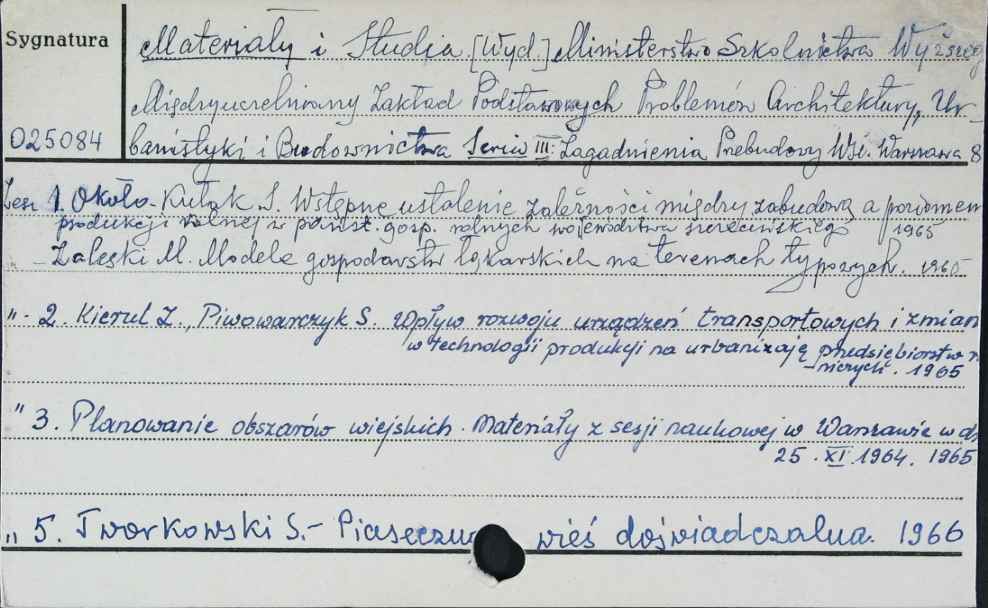 Sygnatura
Materiały i Studia [Wyd.] Ministerstwo Szkolnictwa Wyższeg
Międzyuczelniany Zakład Podstawowych Problemów Architektury, Ur-
025084
banistyki i Budownictwa Seria III: Zagadnienia Przebudowy Wsi. Warszawa 8
Zesz 1. Około-Kułak S. Wstępne ustalenie zależności między zabudową a poziomem
produkcji rolnej w państ. gosp. rolnych województwa szczecińskiego 1965
- Zaleski M. Modele gospodarstw łąkarskich na terenach typowych. 1965
"- 2. Kierul Z., Piwowarczyk S. Wpływ rozwoju urządzeń transportowych i zmian
w technologii produkcji na urbanizają przedsiębiorstw r.
-niczych. 1965
" 3. Planowanie obszarów wiejskich. Materiały z sesji naukowej w Warszawie w d.
25.XI.1964. 1965
" 5. Tworkowski S.- Piaseczno wieś doświadczalna. 1966